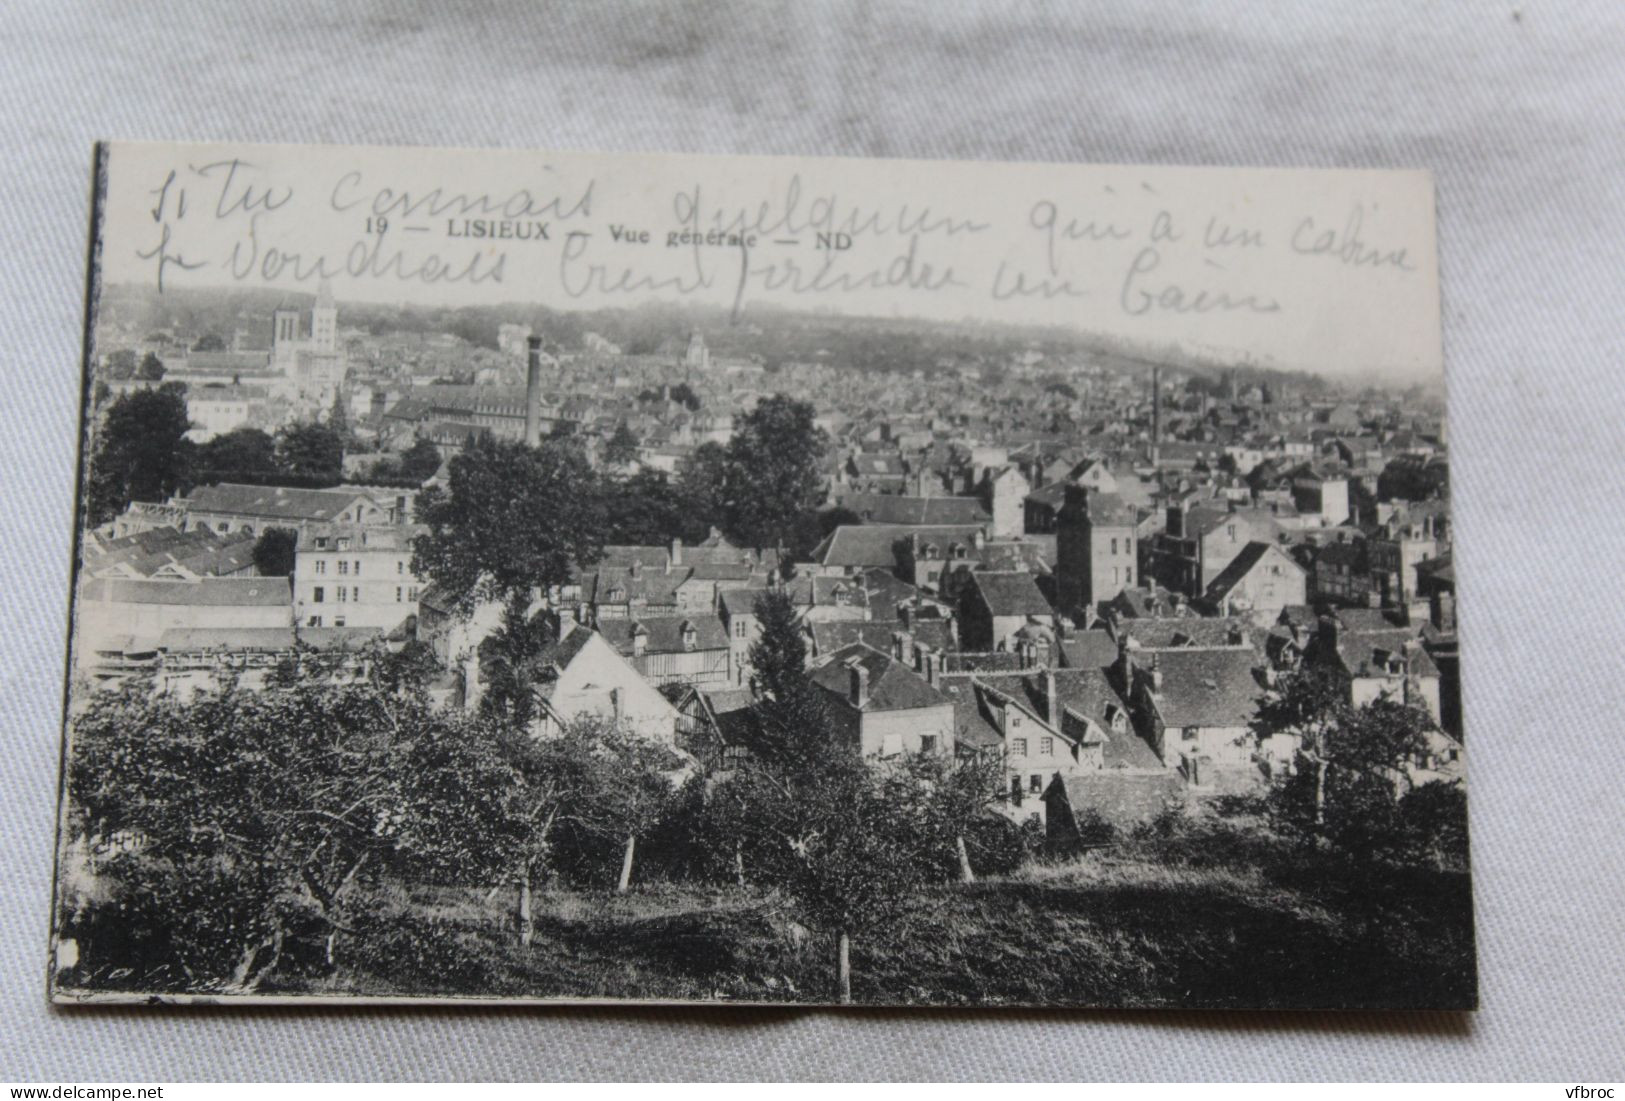 si tu connais quelqu'un qui à un cabine
19 — LISIEUX — Vue générale — ND
je voudrais bien prendre un bain
vfbroc